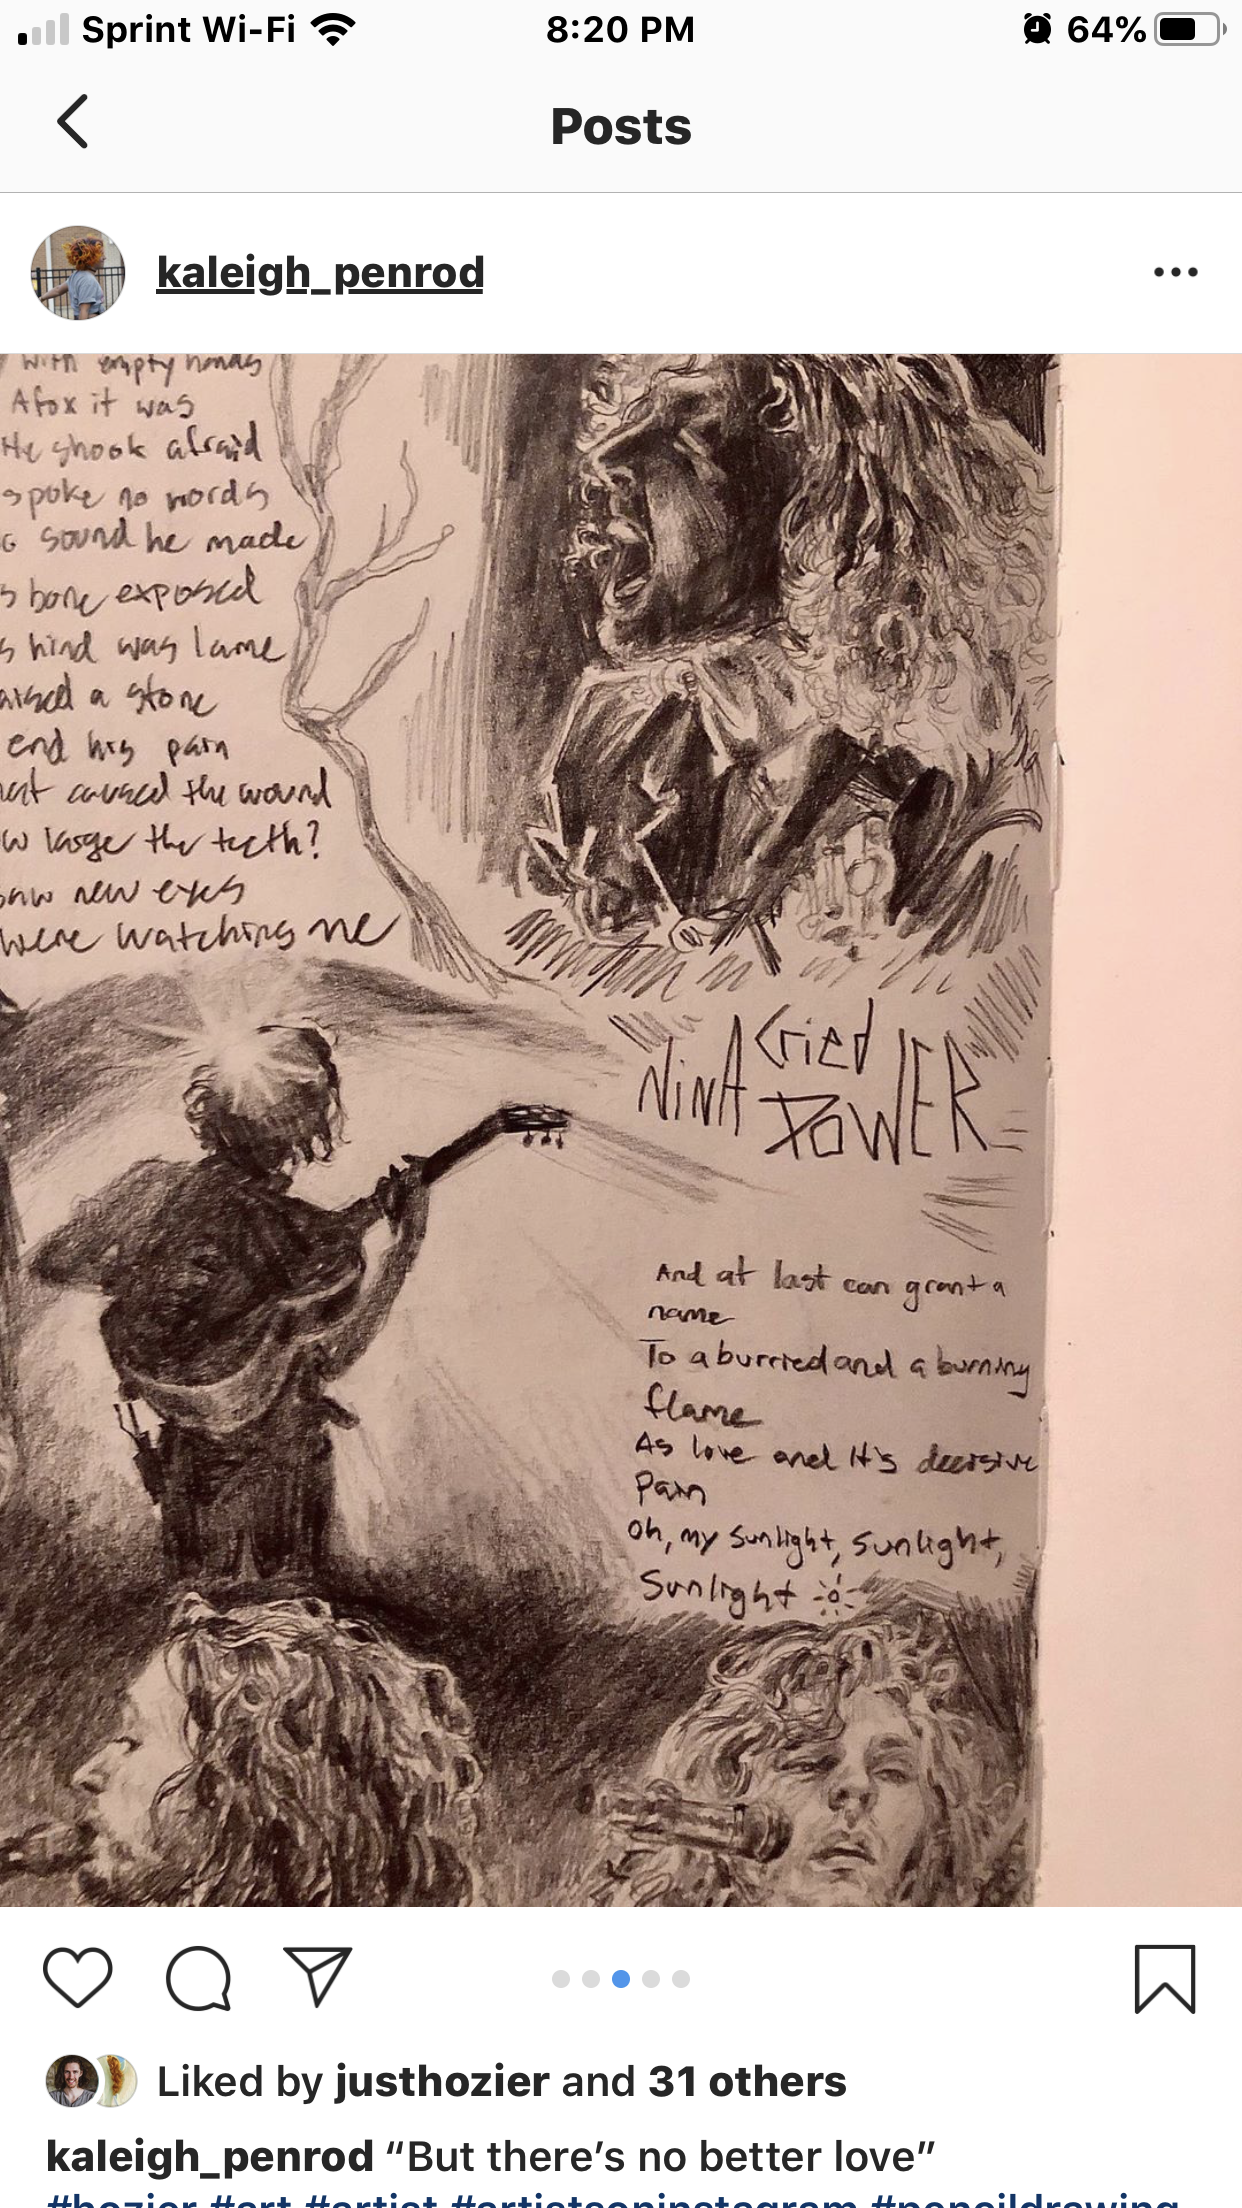 Sprint Wi-Fi 8:20 PM 64%
Posts
kaleigh_penrod
with empty hands
A fox it was
He shook afraid
spoke no words
sound he made
bone exposed
hind was lame
a stone
end his pain
caused the wound
large the teeth?
saw new eyes
were watching me
NINA Cried
POWER
And at last can grant a
name
To a burried and a burning
flame
As love and It's decisive
Pain
Oh, my sunlight, sunlight,
Sunlight
Liked by justhozier and 31 others
kaleigh_penrod “But there’s no better love”
#hozier #art #artist #artistsoninstagram #pencildrawing